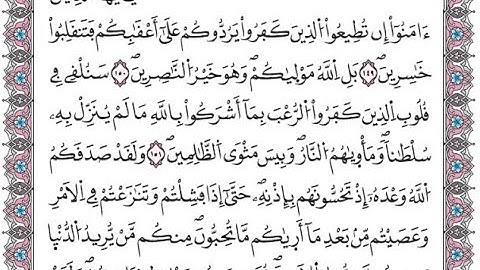 ءَامَنُوٓاْ إِن تُطِيعُواْ الَّذِينَ كَفَرُواْ يَرُدُّوكُمْ عَلَىٰٓ أَعْقَٰبِكُمْ فَتَنقَلِبُواْ
خَٰسِرِينَ ١٤٩ بَلِ اللَّهُ مَوْلَىٰكُمْ وَهُوَ خَيْرُ النَّٰصِرِينَ ١٥٠ سَنُلْقِي فِي
قُلُوبِ الَّذِينَ كَفَرُواْ الرُّعْبَ بِمَآ أَشْرَكُواْ بِاللَّهِ مَا لَمْ يُنَزِّلْ بِهِۦ
سُلْطَٰنًا وَمَأْوَىٰهُمُ النَّارُ وَبِيسَ مَثْوَى الظَّٰلِمِينَ ١٥١ وَلَقَد صَّدَقَكُمُ
اللَّهُ وَعْدَهُۥٓ إِذْ تَحُسُّونَهُم بِإِذْنِهِۦ حَتَّىٰٓ إِذَا فَشِلْتُمْ وَتَنَٰزَعْتُمْ فِي الْأَمْرِ
وَعَصَيْتُم مِّنۢ بَعْدِ مَآ أَرَىٰكُم مَّا تُحِبُّونَ مِنكُم مَّن يُرِيدُ الدُّنْيَا